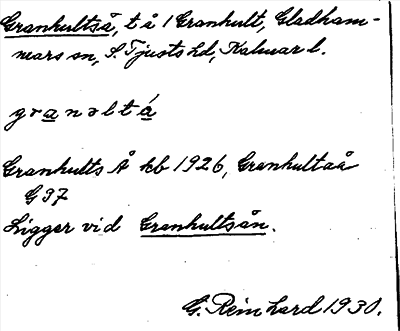 Granhultså, t å 1 Granhult, Gladham-
mars sn, S. Tjusts hd, Kalmar l.
granəltá
Granhults Å kb 1926, Granhultaå
G 37
Ligger vid Granhultsån.
G. Reinhard 1930.